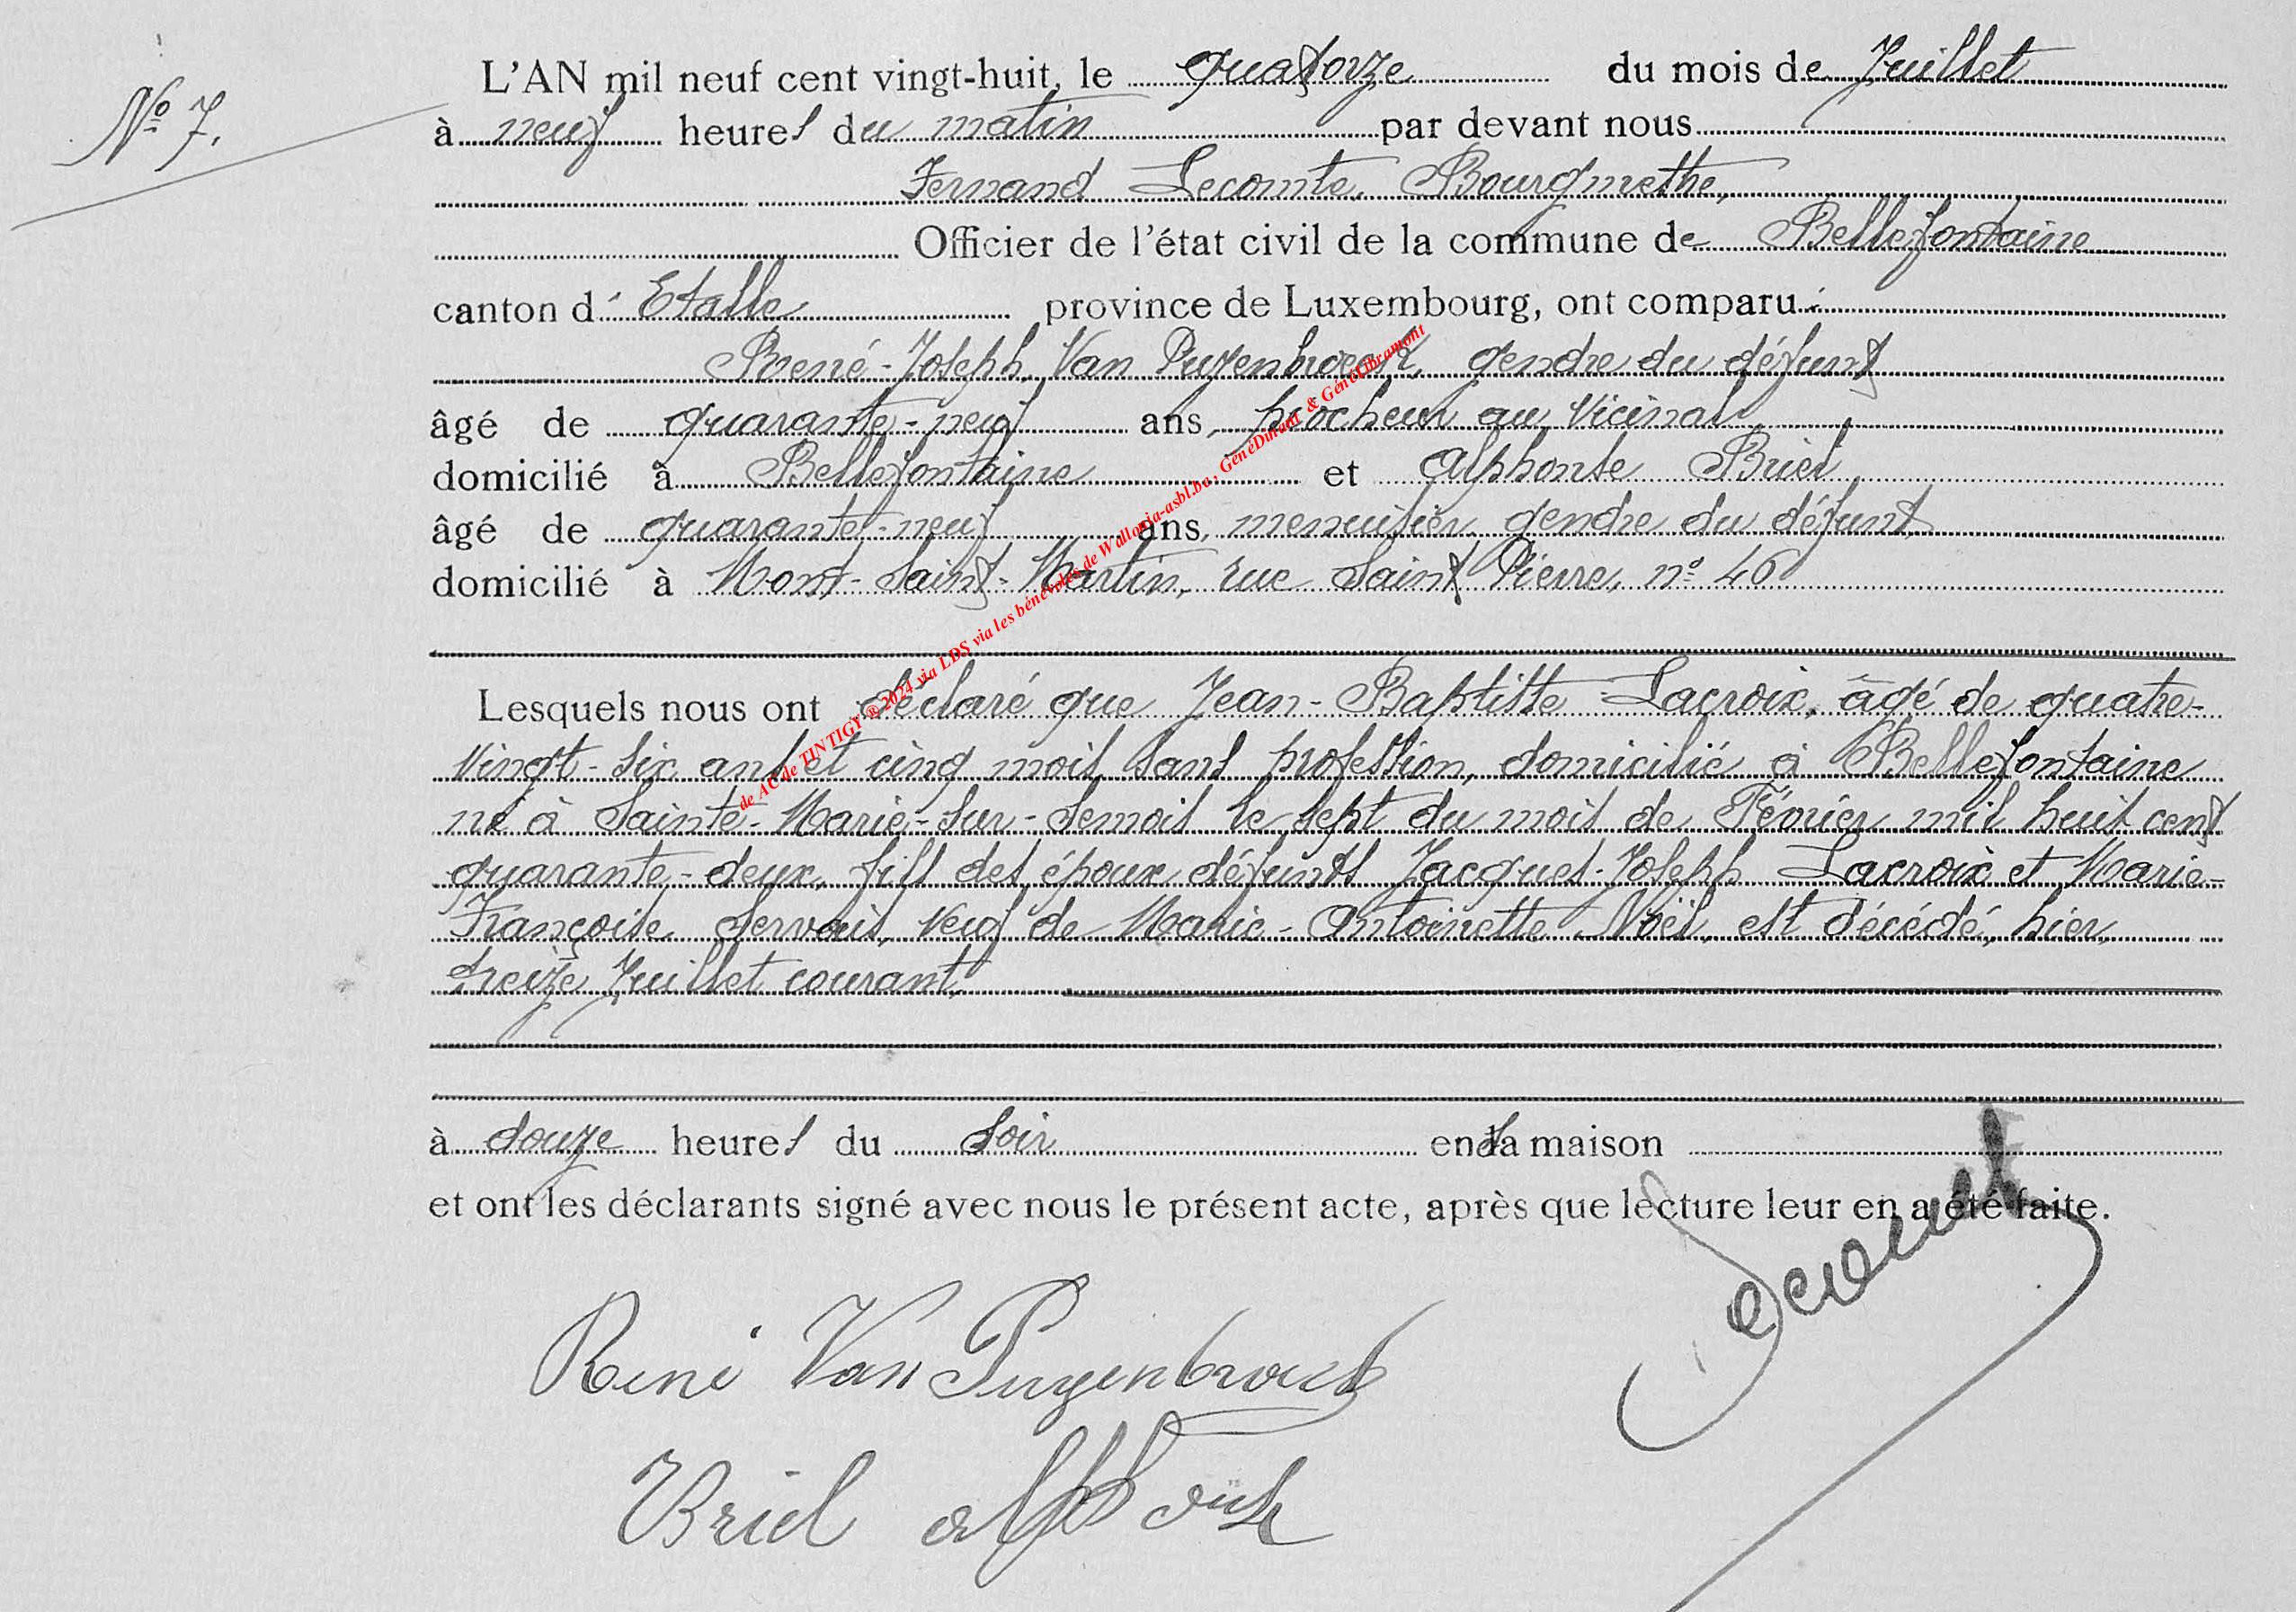 L'AN mil neuf cent vingt-huit, le quatorze du mois de Juillet
N° 7.
à neuf heures du matin par devant nous
Fernand Lecomte, Bourgmestre,
Officier de l'état civil de la commune de Bellefontaine
canton d'Etalle province de Luxembourg, ont comparu :
René-Joseph Van Puyenbroeck, gendre du défunt
âgé de quarante-neuf ans, piocheur au Vicinal
domicilié à Bellefontaine et Alphonse Briel
âgé de quarante-neuf ans, menuisier, gendre du défunt,
domicilié à Mont-Saint-Martin, rue Saint Pierre, n° 46
Lesquels nous ont déclaré que Jean-Baptiste Lacroix, âgé de quatre-
vingt-six ans et cinq mois, sans profession, domicilié à Bellefontaine
né à Sainte-Marie-sur-Semois le sept du mois de Février mil huit cent
quarante-deux, fils des époux défunts Jacques-Joseph Lacroix et Marie-
Françoise Servais, veuf de Marie-Antoinette Noël, est décédé, hier,
treize Juillet courant,
à douze heures du soir en sa maison
et ont les déclarants signé avec nous le présent acte, après que lecture leur en a été faite.
Lecomte
René Van Puyenbroeck
Briel Alphonse
de AC de TINTIGY ® 2024 via LDS via les bénévoles de Wallonia-asbl.be, GénéDinant & GénéLibramont